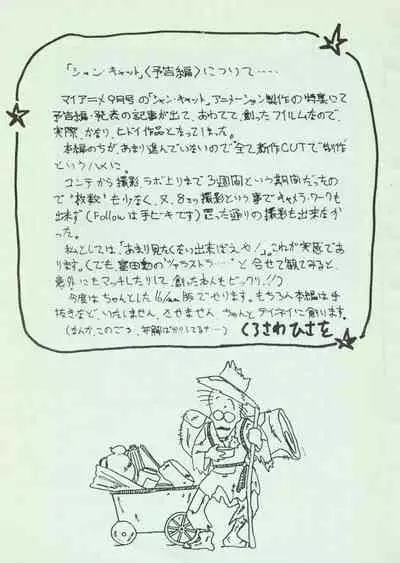 「シャン・キャット」〈予告編〉について……
マイアニメ9月号の「シャン・キャット」アニメーション製作の特集にて
予告編・発表の記事が出て、あわてて、創ったフィルムなので、
実際、かなり、ヒドイ作品となってしまった。
本編のちが、あまり進んでいないので全て新作CUTで製作
というハメに。
コンテから撮影、ラボ上りまで3週間という期間だったの
で"枚数"も少なく、又、8ミリ撮影という事でキャメラ・ワークも
出来ず(Followは手ビキです)思った通りの撮影も出来なか
った。
私としては、「あまり見たくない出来ばえや!」これが実感であ
ります。(でも冨田勲の と合せて観てみると、
意外にもマッチしたりして創った本人もビックリ!!)
今度はちゃんとした16/mm でやります。もちろん本編は手
抜きなど、いたしません、させません、ちゃんとテイネイに創ります。
(なんか、このごろ、 してるナ…)くろさわひさを